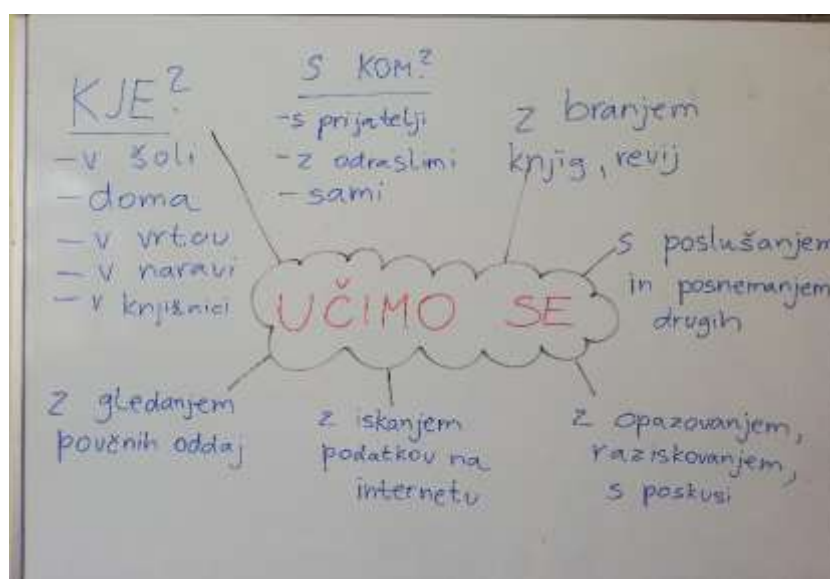 KJE?
- v šoli
- doma
- v vrtcu
- v naravi
- v knjižnici
S KOM?
- s prijatelji
- z odraslimi
- sami
z branjem
knjig, revij
s poslušanjem
in posnemanjem
drugih
UČIMO SE
z gledanjem
poučnih oddaj
z iskanjem
podatkov na
internetu
z opazovanjem,
raziskovanjem,
s poskusi